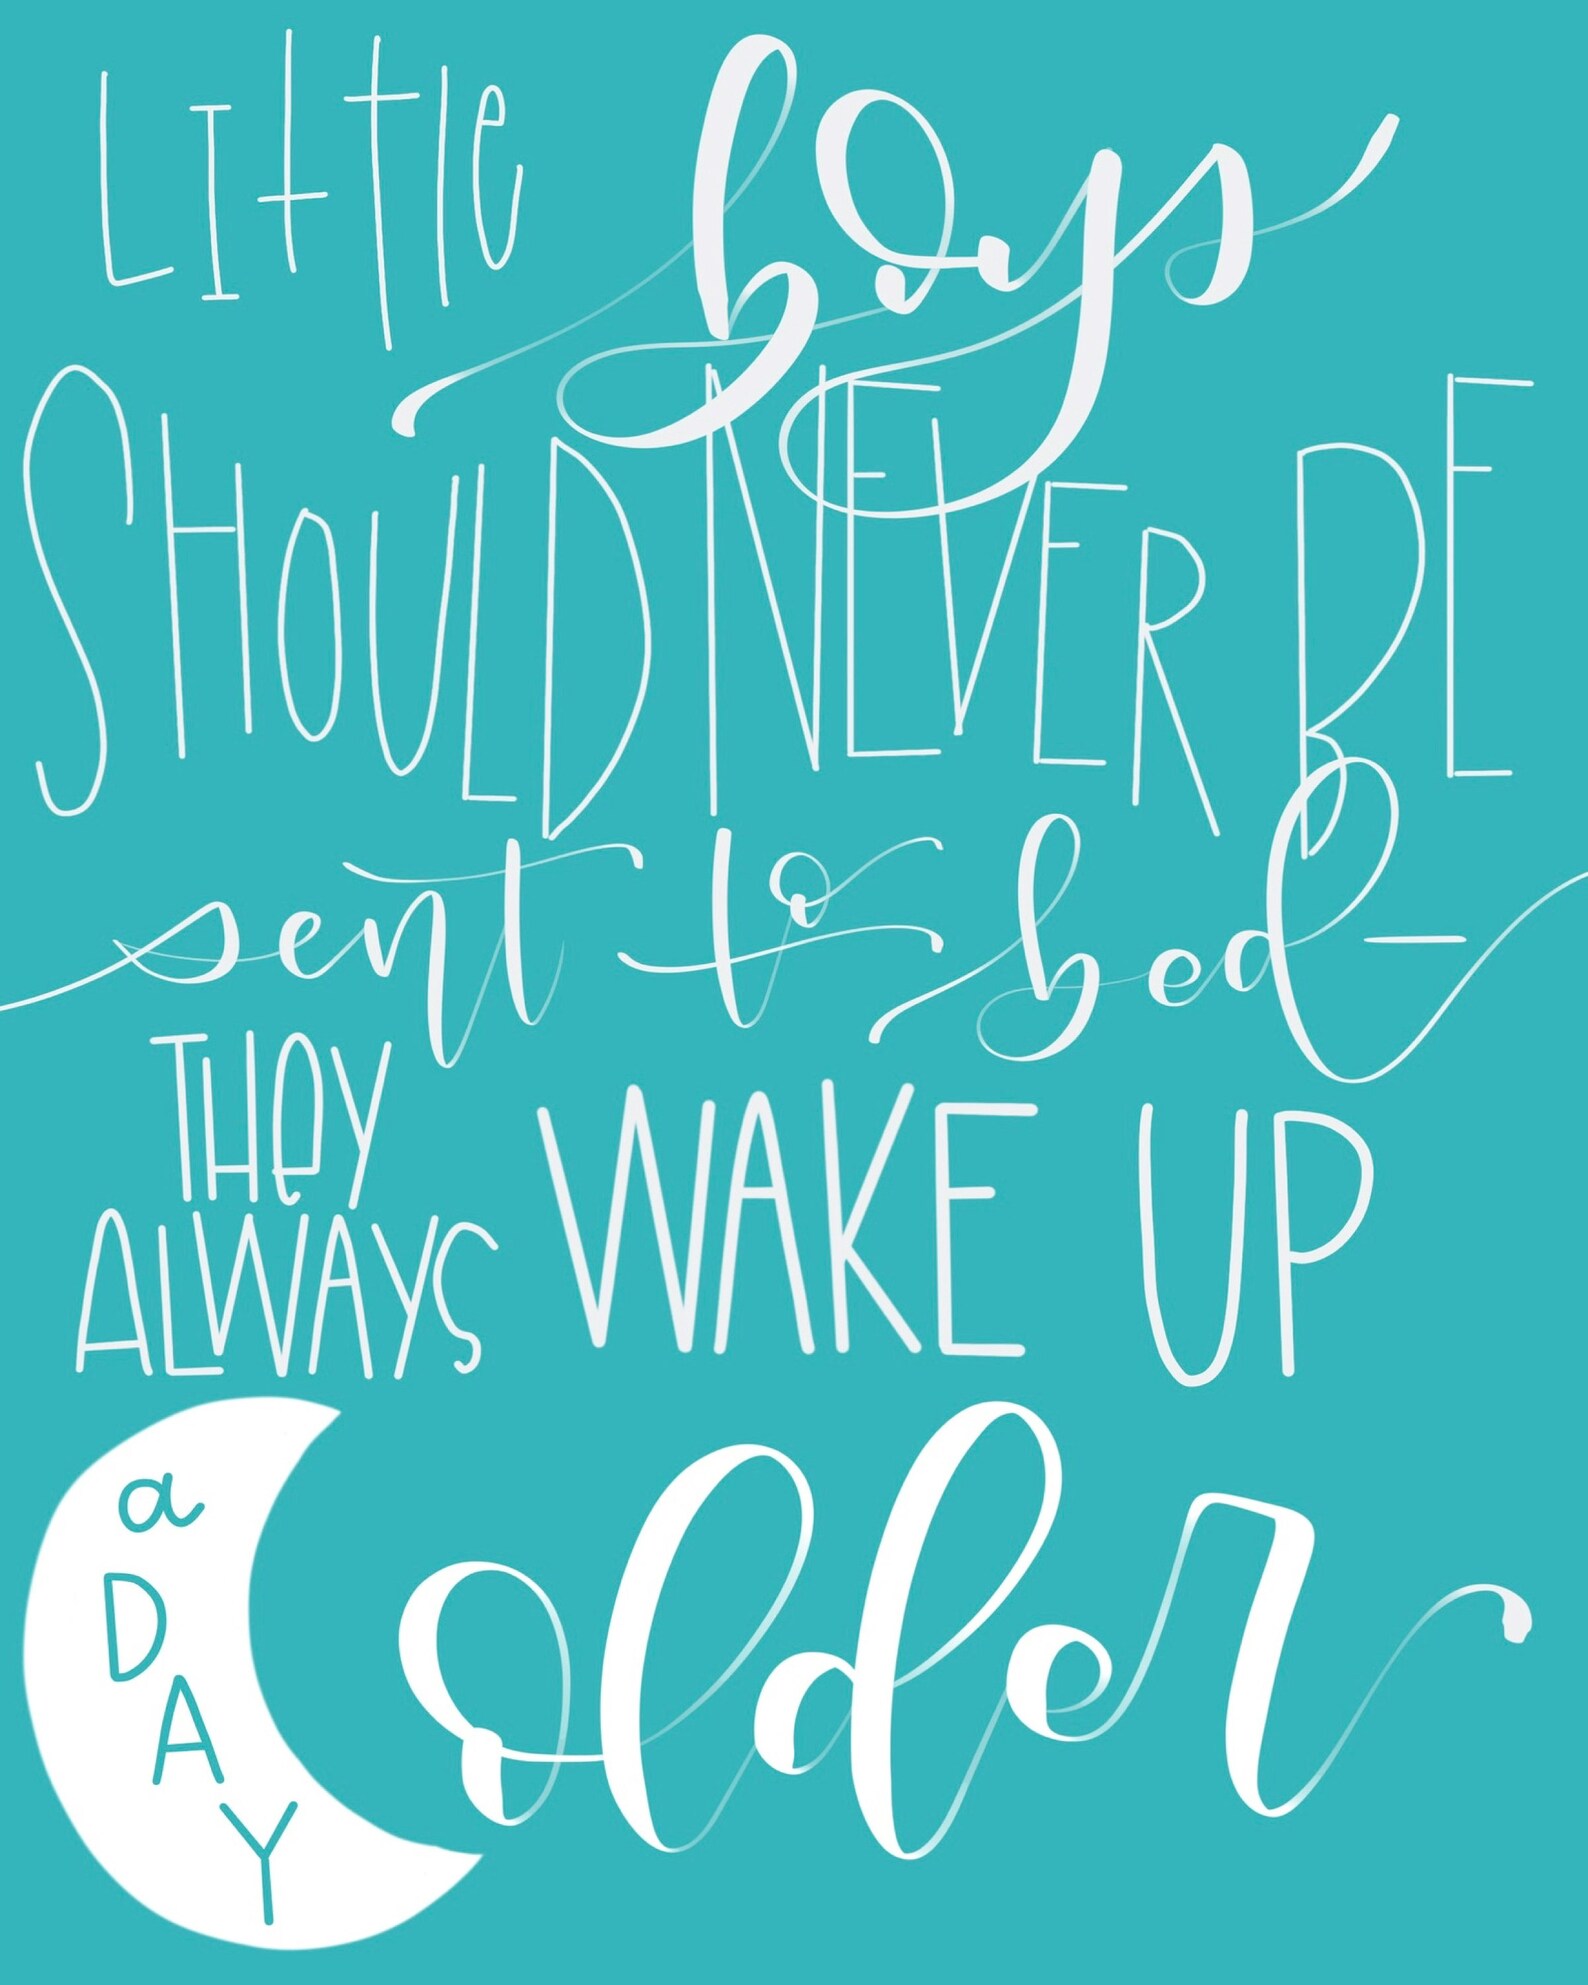 Little boys
SHOULD NEVER BE
sent to bed-
THEY
ALWAYS WAKE UP
a DAY older